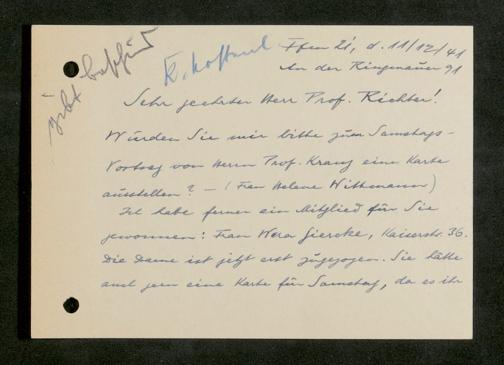 K. Hoffmul Ffm 21, d. 11/12/41
An der Ringmauer 91
Sehr geehrter Herr Prof. Richter!
Würden Sie mir bitte zum Samstags-
Vortrag von Herrn Prof. Kranz eine Karte
ausstellen? – (Frau Helene Wittemann)
Ich habe ferner ein Mitglied für Sie
gewonnen: Frau Wera Giercke, Kaiserstr. 36.
Die Dame ist jetzt erst zugezogen. Sie hätte
auch gern eine Karte für Samstag, da es ihr